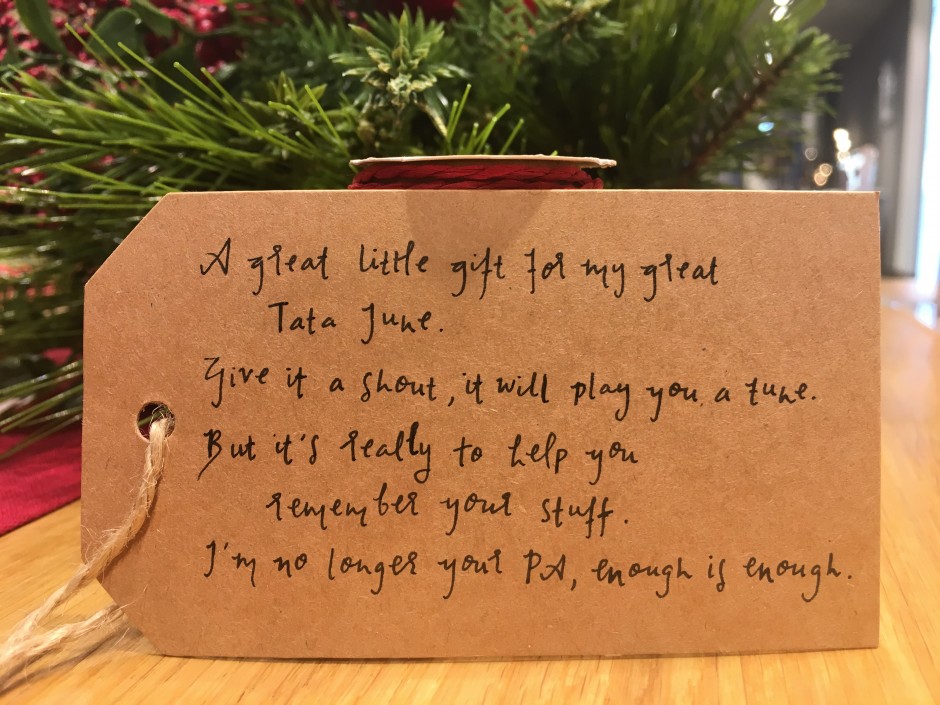 A great little gift for my great
Tata June.
Give it a shout, it will play you a tune.
But it's really to help you
remember your stuff.
I'm no longer your PA, enough is enough.